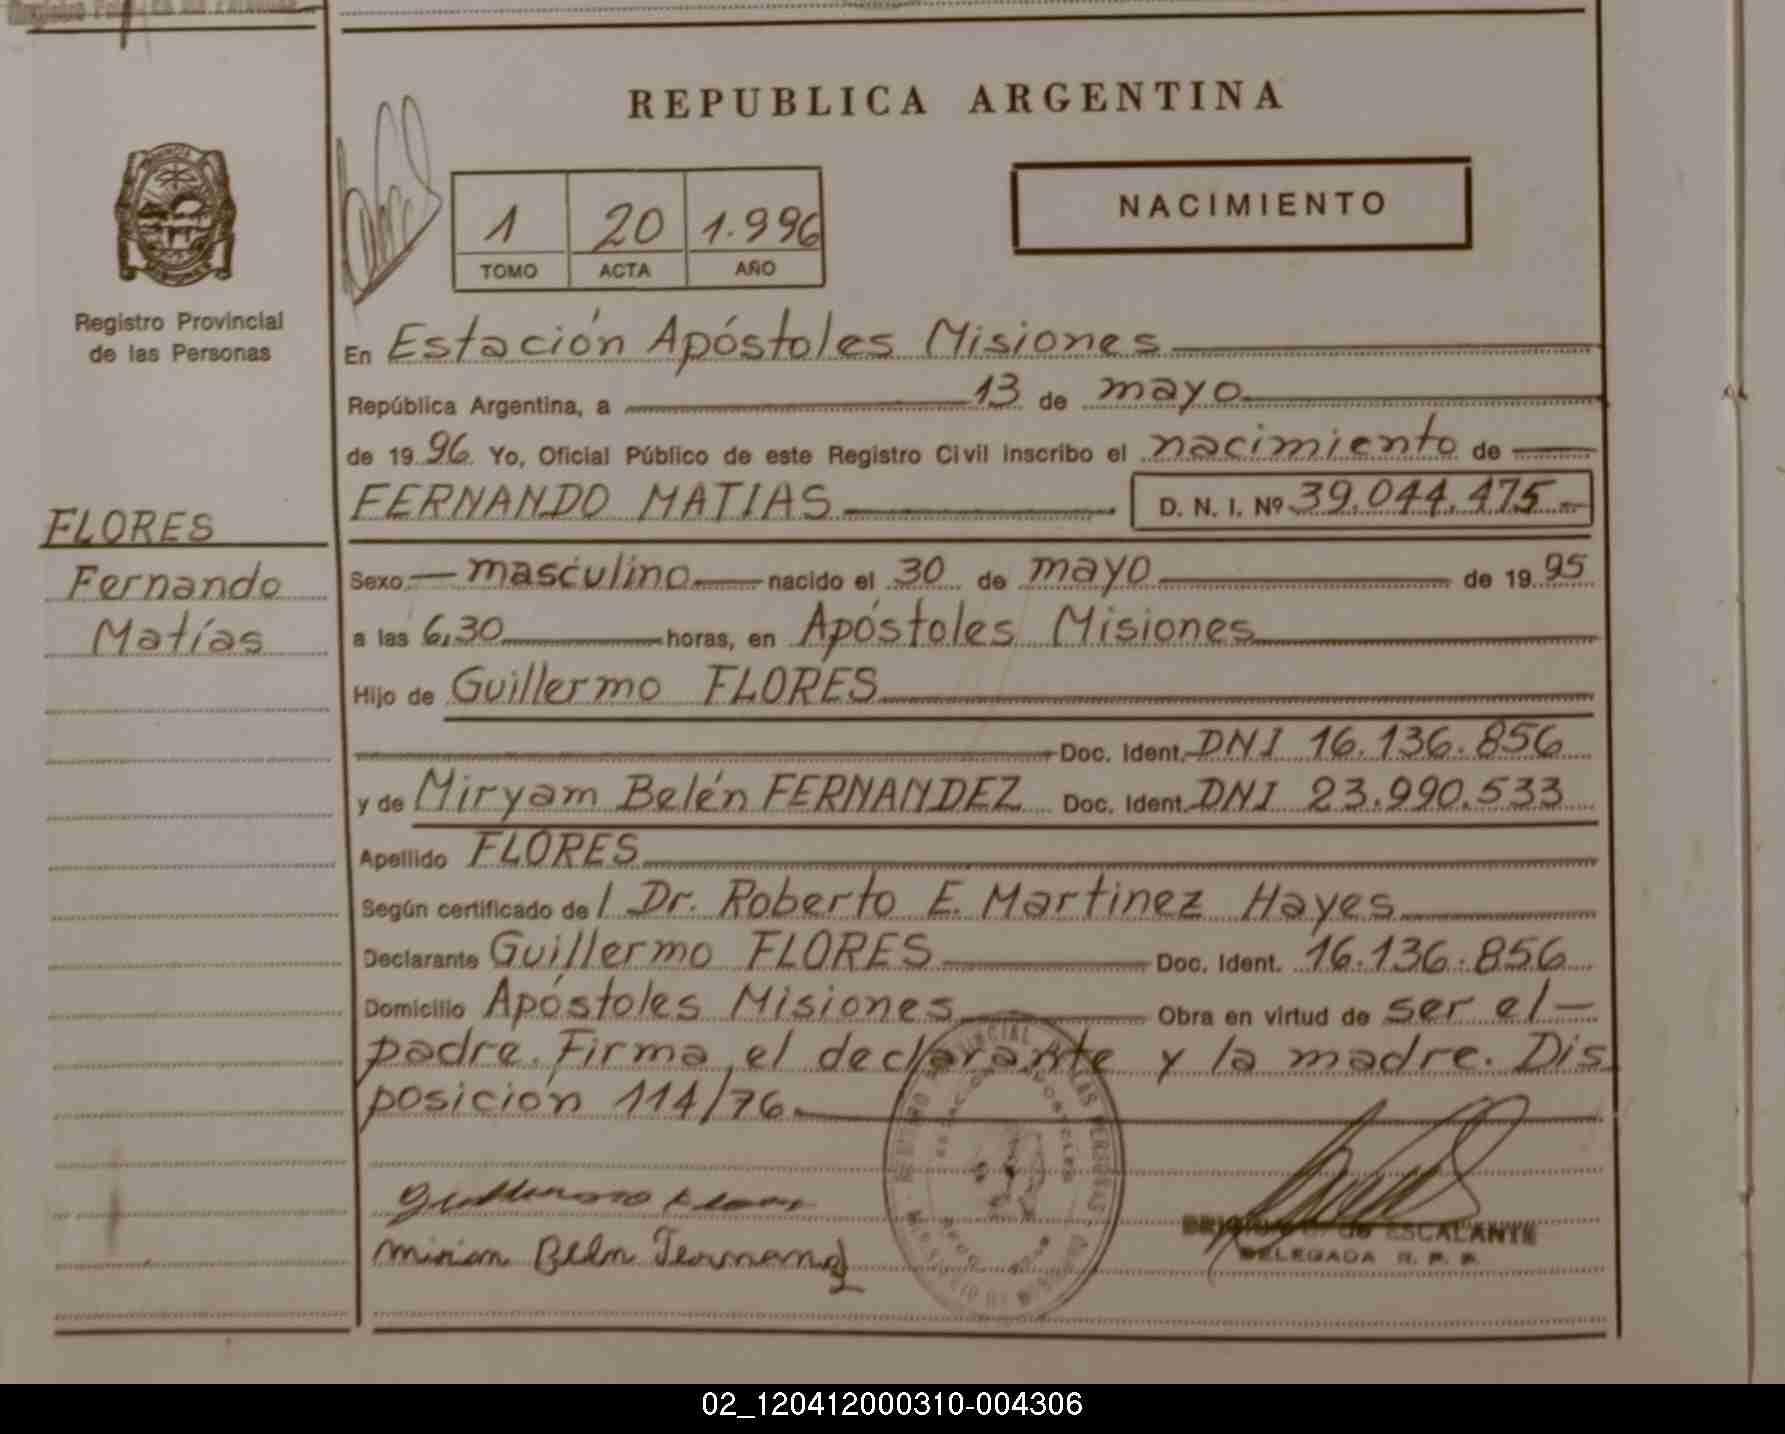 REPUBLICA ARGENTINA
NACIMIENTO
1 20 1.996
TOMO ACTA AÑO
Registro Provincial
de las Personas
FLORES
Fernando
Matías
En Estación Apóstoles Misiones
República Argentina, a 13 de mayo
de 1996. Yo, Oficial Público de este Registro Civil inscribo el nacimiento de
FERNANDO MATIAS D. N. I. Nº 39.044.475.-
Sexo masculino nacido el 30 de mayo de 1995
a las 6,30 horas, en Apóstoles Misiones
Hijo de Guillermo FLORES
Doc. Ident. DNI 16.136.856
y de Miryam Belén FERNANDEZ Doc. Ident. DNI 23.990.533
Apellido FLORES
Según certificado de / Dr. Roberto E. Martinez Hayes
Declarante Guillermo FLORES Doc. Ident. 16.136.856
Domicilio Apóstoles Misiones Obra en virtud de ser el-
padre. Firma el declarante y la madre. Dis
posición 114/76.
Guillermo Flores
Mirian Belen Fernandez
de ESCALANTE
DELEGADA R. P. P.
02_120412000310-004306